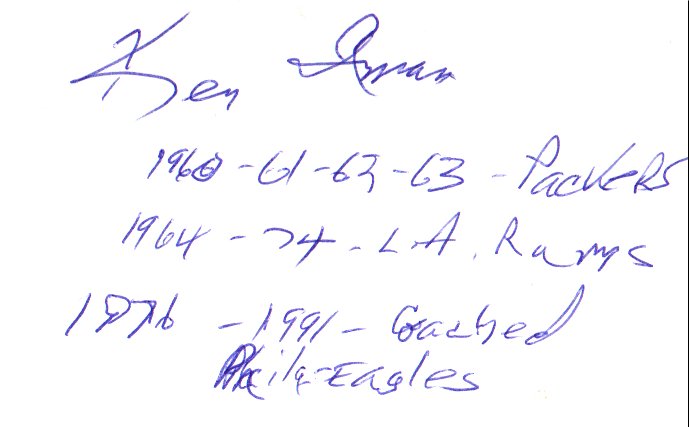 Ken Iman
1960-61-62-63-Packers
1964-74-L.A. Rams
1976-1991-Coached
Phila-Eagles